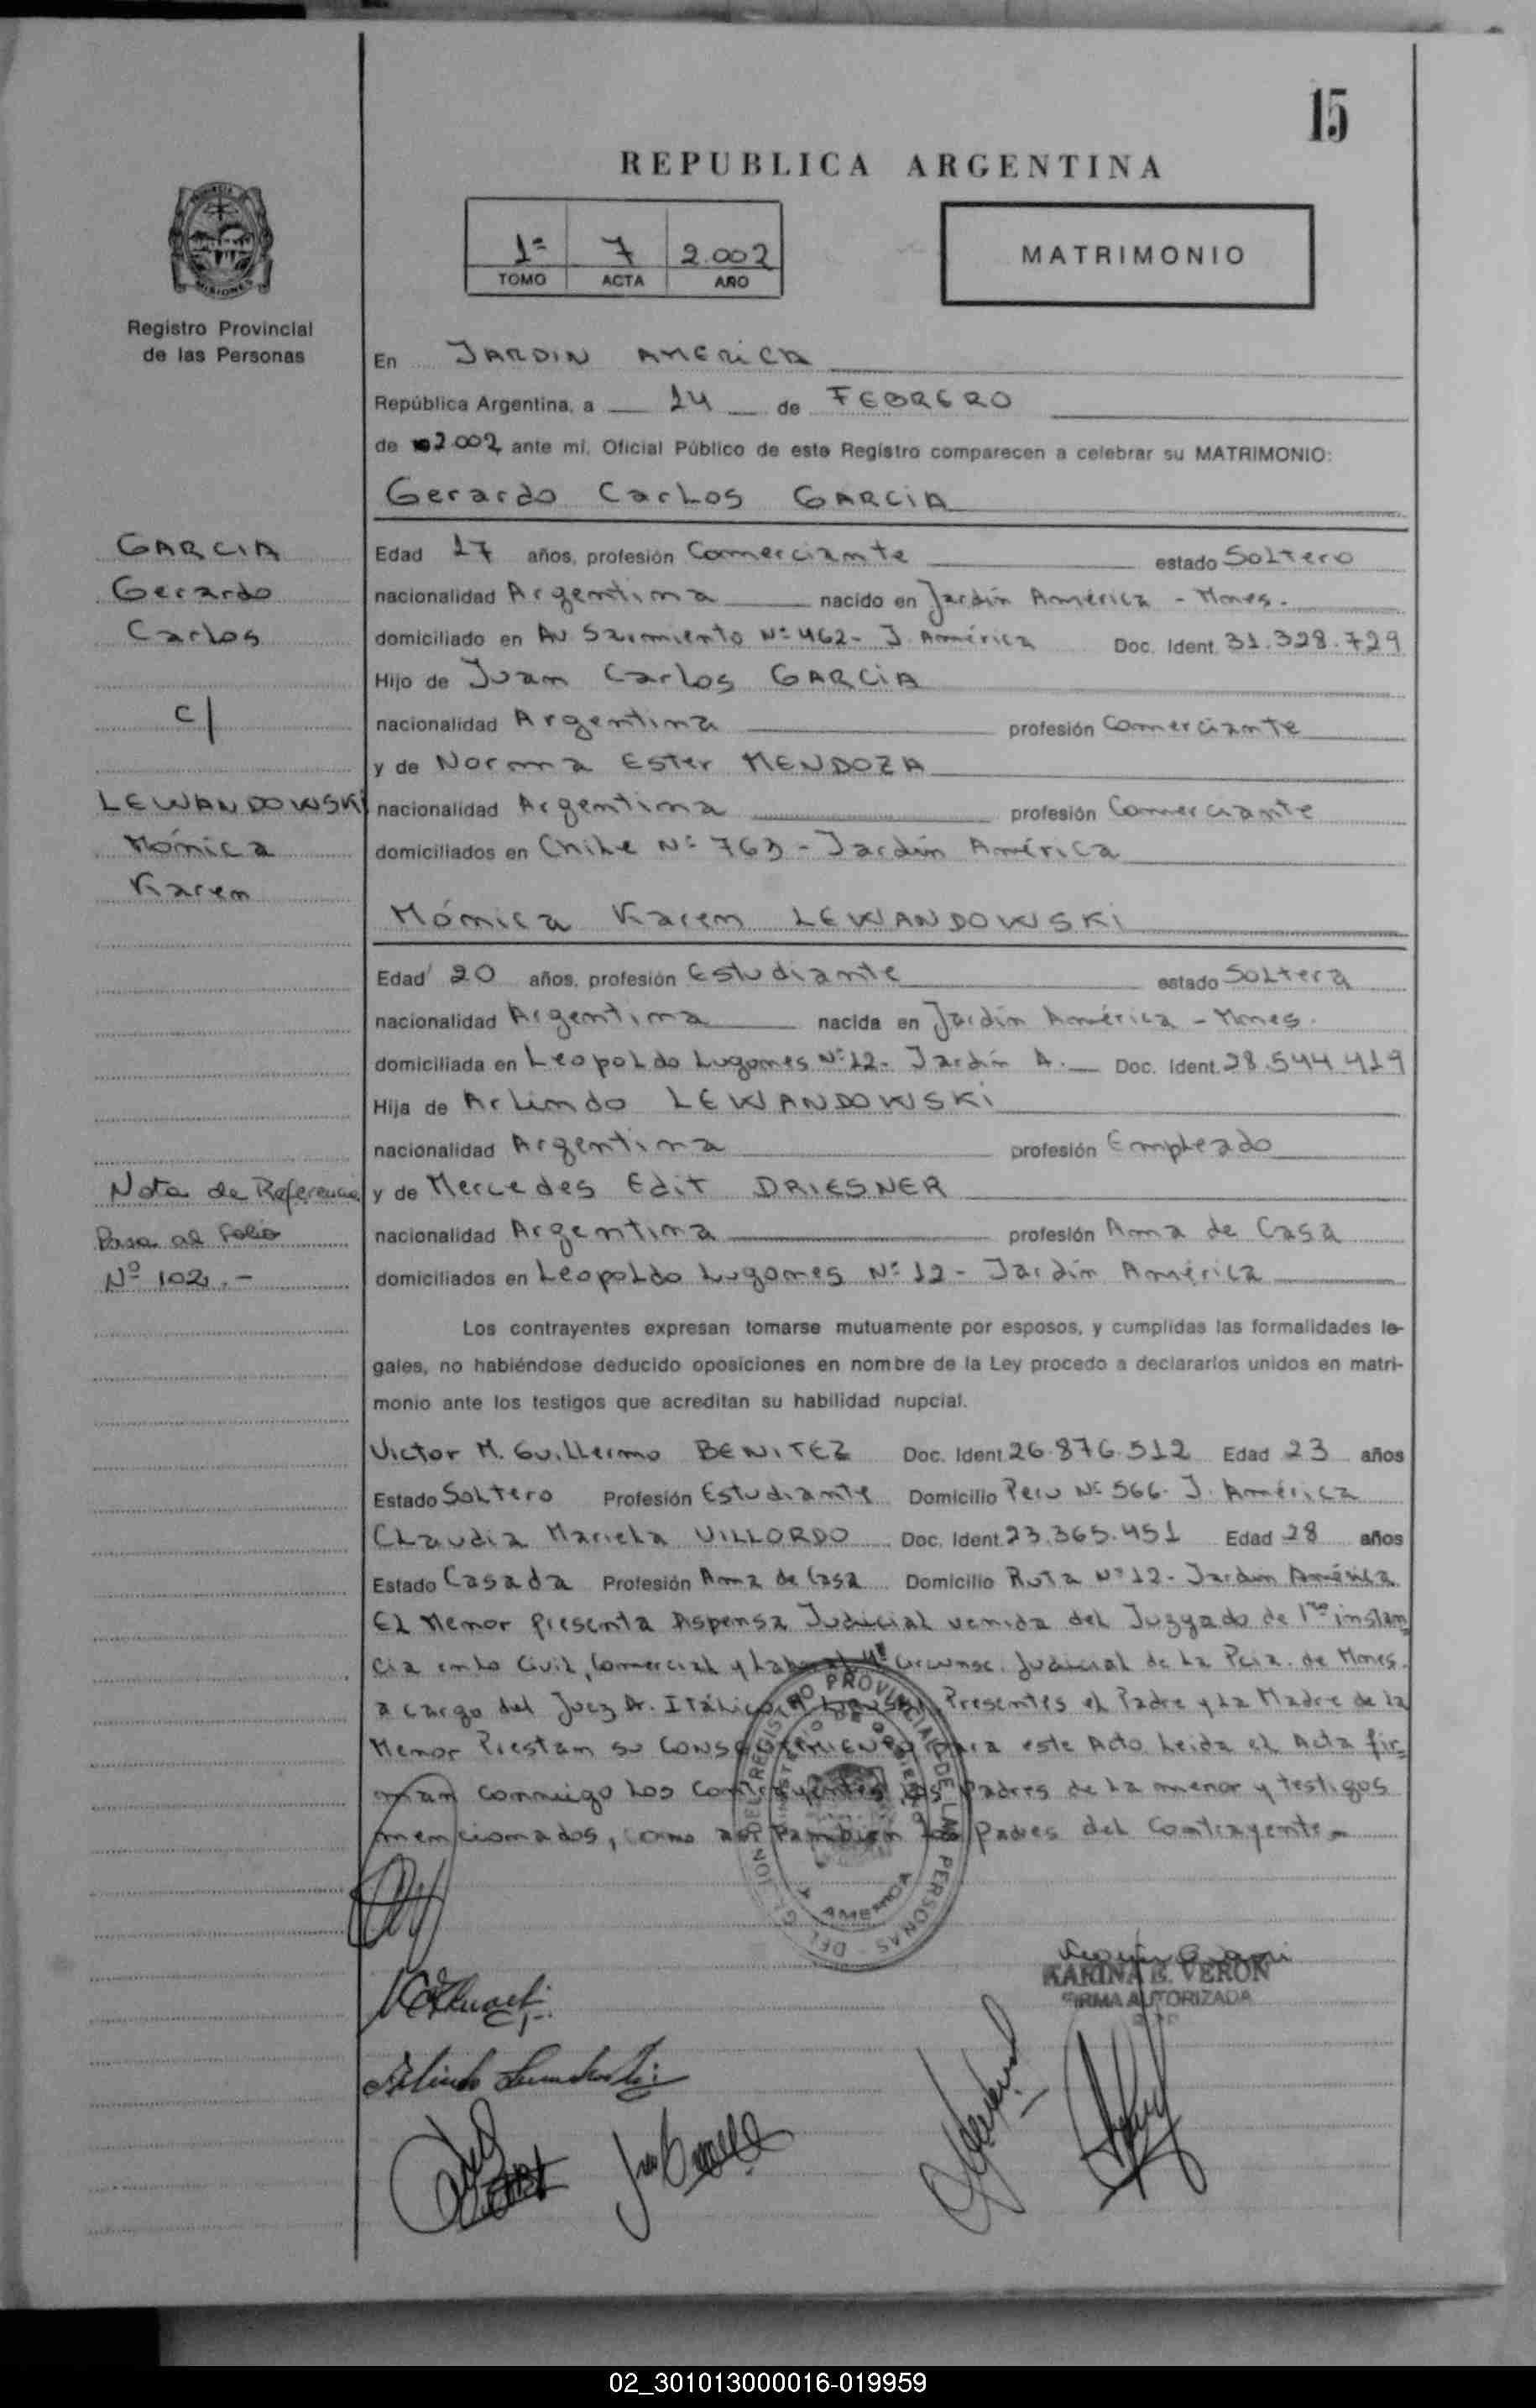 15
REPUBLICA ARGENTINA
1º 7 2.002
TOMO ACTA AÑO
MATRIMONIO
MISIONES
Registro Provincial
de las Personas
En JARDIN AMERICA
República Argentina, a 14 de FEBRERO
de 2.002 ante mí, Oficial Público de este Registro comparecen a celebrar su MATRIMONIO:
Gerardo Carlos GARCIA
GARCIA
Gerardo
Carlos
c/
LEWANDOWSKI
Mónica
Karen
Edad 17 años, profesión Comerciante estado Soltero
nacionalidad Argentina nacido en Jardín América - Mnes.
domiciliado en Av Sarmiento Nº 462- J. América Doc. Ident. 31.328.729
Hijo de Juan Carlos GARCIA
nacionalidad Argentina profesión Comerciante
y de Norma Ester MENDOZA
nacionalidad Argentina profesión Comerciante
domiciliados en Chile Nº 763 - Jardín América
Mónica Karen LEWANDOWSKI
Edad 20 años, profesión Estudiante estado Soltera
nacionalidad Argentina nacida en Jardín América - Mnes.
domiciliada en Leopoldo Lugones Nº 12- Jardín A. Doc. Ident. 28.544.419
Hija de Arlindo LEWANDOWSKI
nacionalidad Argentina profesión Empleado
y de Mercedes Edit DRIESNER
nacionalidad Argentina profesión Ama de Casa
domiciliados en Leopoldo Lugones Nº 12 - Jardín América
Nota de Referencia
Pasa al folio
Nº 102.-
Los contrayentes expresan tomarse mutuamente por esposos, y cumplidas las formalidades le-
gales, no habiéndose deducido oposiciones en nombre de la Ley procedo a declararlos unidos en matri-
monio ante los testigos que acreditan su habilidad nupcial.
Victor M. Guillermo BENITEZ Doc. Ident. 26.876.512 Edad 23 años
Estado Soltero Profesión Estudiante Domicilio Peru Nº 566- J. América
Claudia Mariela VILLORDO Doc. Ident. 23.365.451 Edad 28 años
Estado Casada Profesión Ama de Casa Domicilio Ruta Nº 12- Jardín América
El Menor presenta Dispensa Judicial venida del Juzgado de 1ra instan
cia en lo Civil, Comercial y Laboral 4ª Circunsc. Judicial de la Pcia. de Mnes.
a cargo del Juez Dr. Presentes el Padre y la Madre de la
Menor Prestan su CONSENTIMIENTO para este Acto Leida el Acta fir=
man conmigo los Contrayentes los Padres de la menor y testigos
mencionados, como así también los Padres del Contrayente-
REGISTRO PROVINCIAL DE LAS PERSONAS
MINISTERIO DE GOBIERNO
AMERICA
KARINA E. VERON
FIRMA AUTORIZADA
02_301013000016-019959